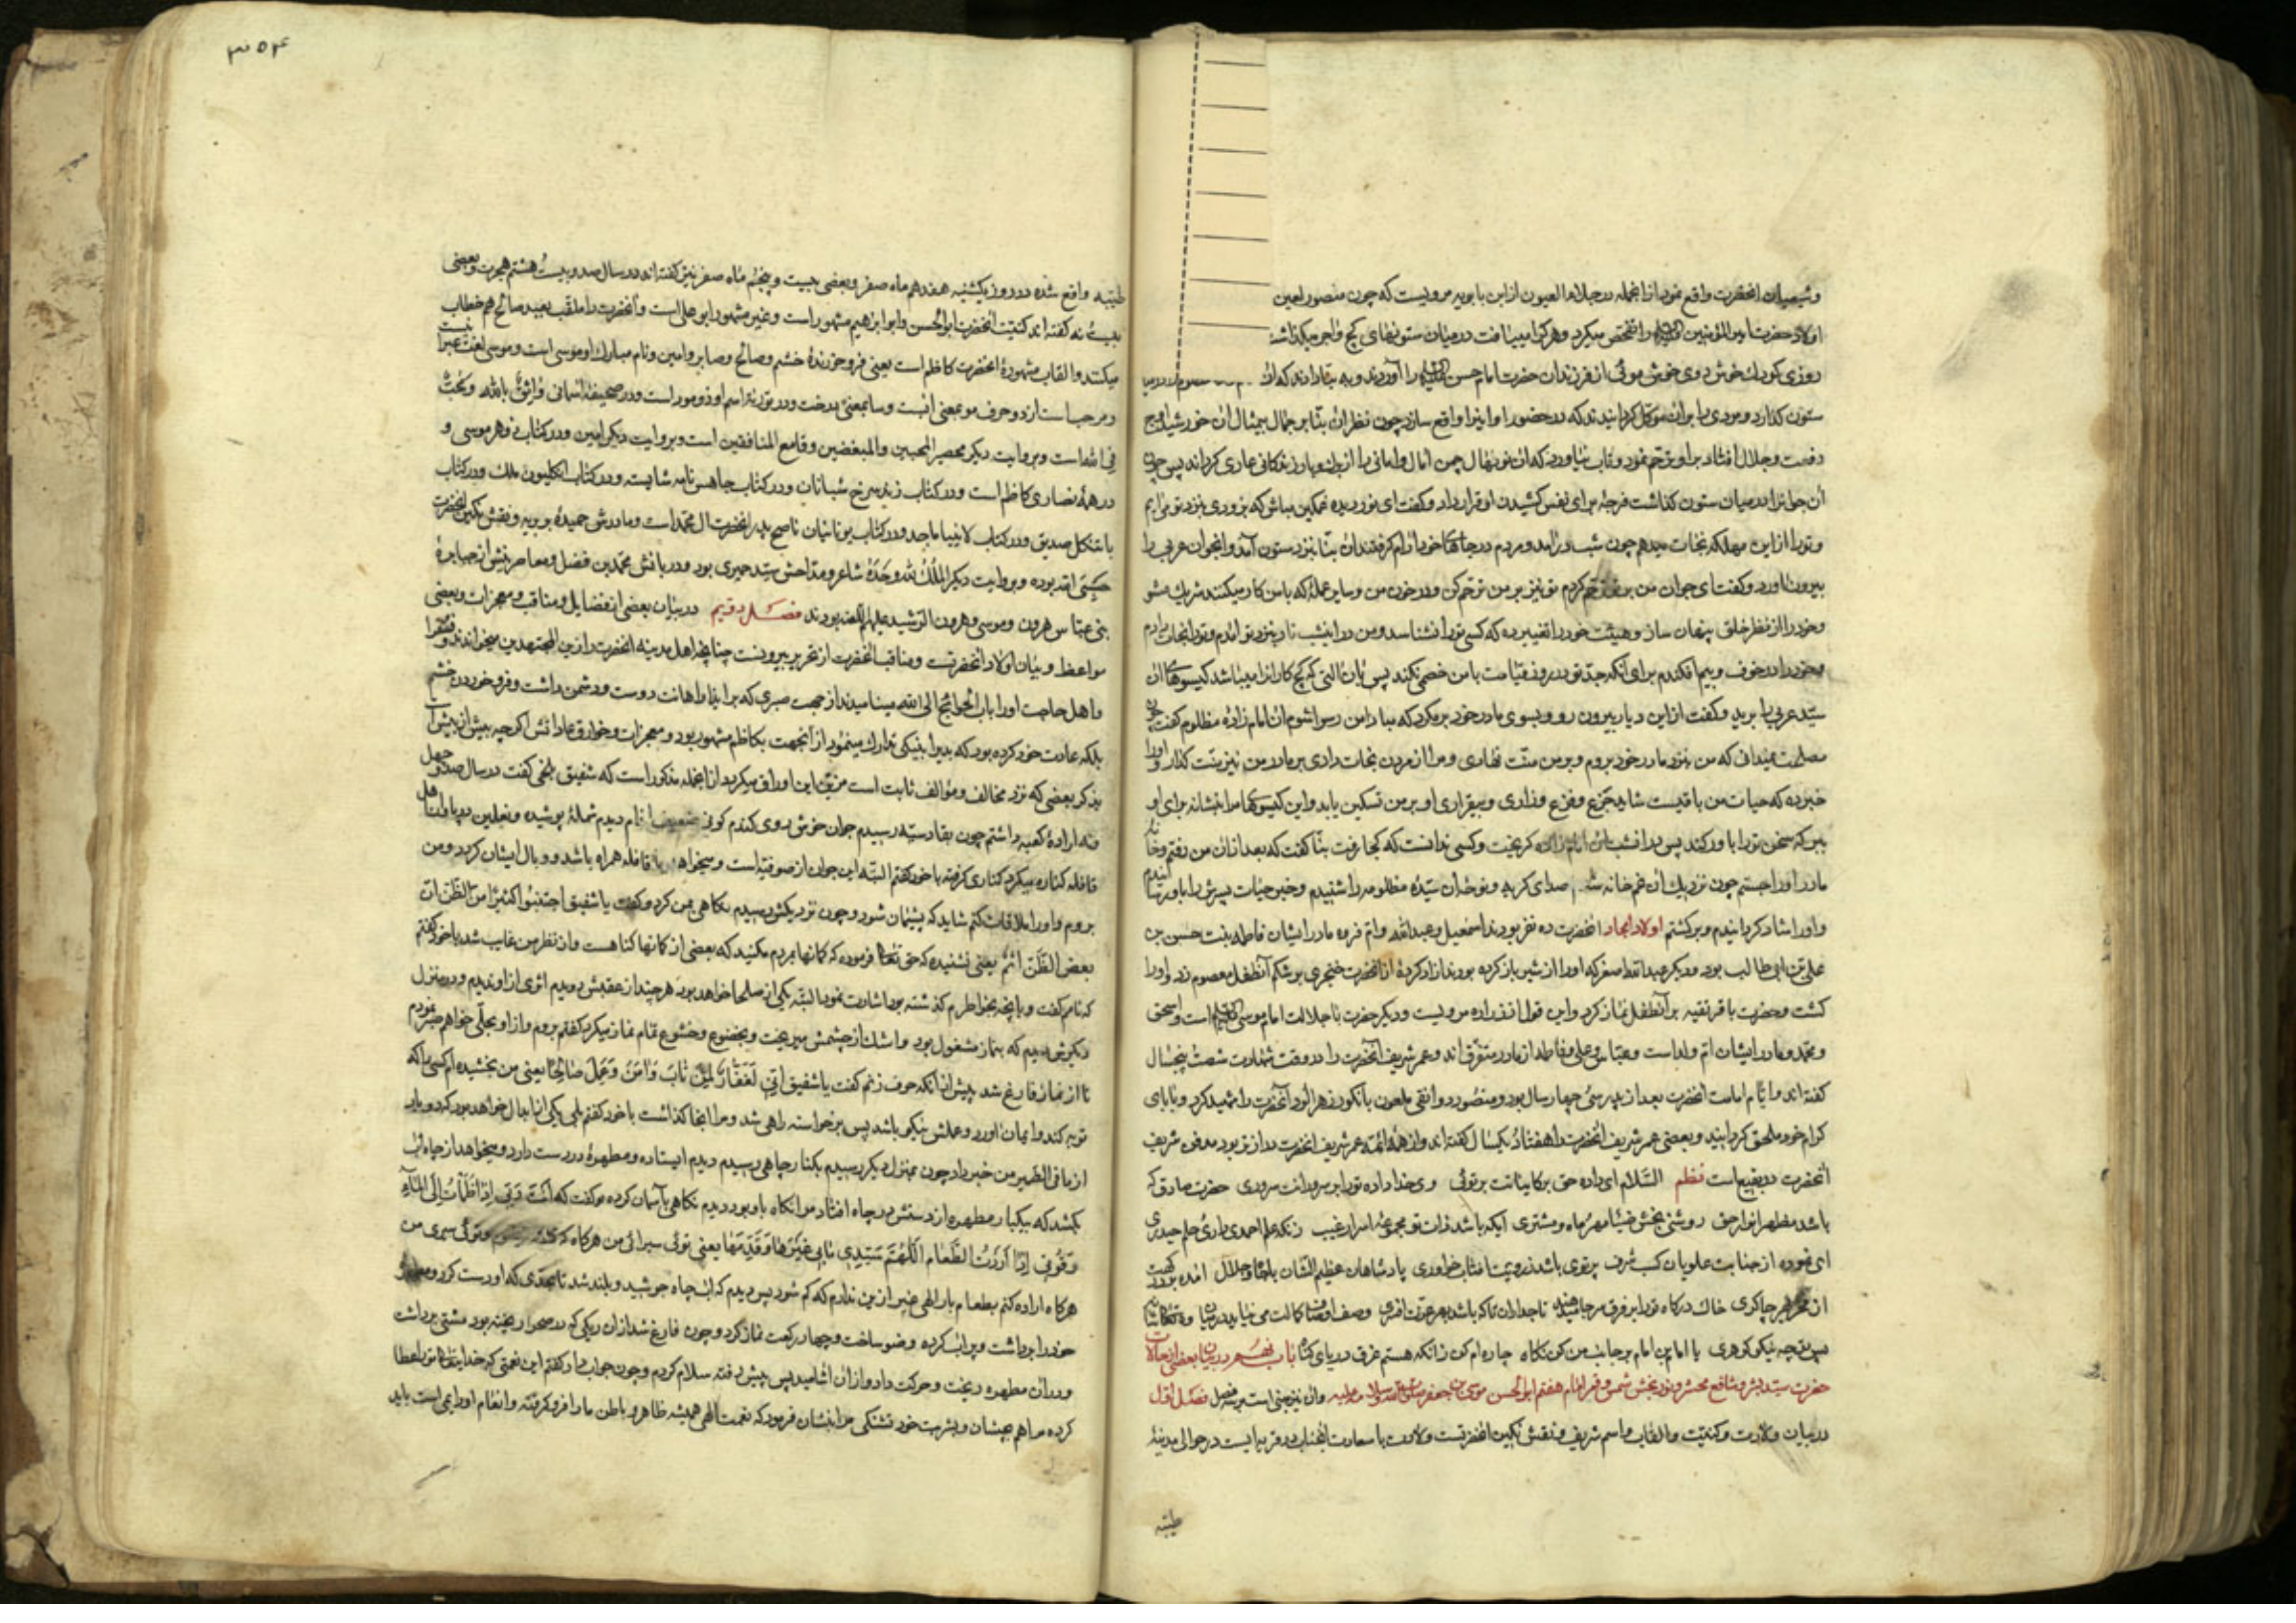 وشیعیان انحضرت واقع نمود از انجمله در جلاء العیون از ابن بابویه مرویست که چون منصور لعین
اولاد حضرت امیر المؤمنین را تفحص میکرد و هر کرا مییافت در میان ستونهای کچ و اجر میکذاشت
روزی کودک خوش روی خوش موئی از فرزندان حضرت امام حسن را آوردند و به بنا دادند که او را
ستون کذارد و مردی را بر ان موکل کردانیدند که در حضور او اینرا واقع سازد چون نظر ان بنا بر جمال بیمثال ان خورشید اوج
رفعت و جلال افتاد بر او ترحم نمود و تاب نیاورد که ان نونهال چمن امال و امانی را از بهار زندکانی عاری کرداند پس چون
ان جوانرا در میان ستون کذاشت فرجهٔ برای نفس کشیدن او قرار داد و کفت ای نور دیده غمکین مباش که بزودی بنزد تو می ایم
و تورا از این مهلکه نجات میدهم چون شب درامد و مردم در جاهای خود ارام کرفتند ان بنا بنزد ستون آمد و انجوان عربی را
بیرون اورد و کفت ای جوان من بر تو ترحم کردم تو نیز بر من ترحم کن و در خون من و سایر عملهٔ که با من کار میکنند شریک مشو
و خود را از نظر خلق پنهان ساز و هیئت خود را تغییر ده که کسی تورا نشناسد و من در اینشب تار بنزد تو امدم و تورا نجات دادم
و خود را در خوف و بیم افکندم برای انکه جد تو در روز قیامت با من خصمی نکند پس بان التی که کچ کارانرا میباشد کیسوهای ان
سید عربی را برید و کفت از این دیار بیرون رو و بسوی مادر خود برمکرد که مبادا من رسوا شوم ان امام زادهٔ مظلوم کفت چون
مصلحت نمیدانی که من بنزد مادر خود بروم و بر من منت نهادی و مرا از مردن نجات دادی بر مادر من نیز منت کذار و اورا
خبر ده که حیات من باقیست شاید جزع و فزع و زاری و بیقراری او بر من تسکین یابد و این کیسوهای مرا بنشانه برای او
ببر که سخن تورا باور کند پس در انشب ان امام زاده کریخت و کسی ندانست که کجا رفت بنا کفت که بعد از ان من رفتم و خانه
مادر او را جستم چون نزدیک ان غم خانه شدم صدای کریه و نوحهٔ ان سیدهٔ مظلومه را شنیدم و خبر حیات پسرش را باو رسانیدم
و اورا شاد کردانیدم و برکشتم اولاد امجاد انحضرت ده نفر بودند اسمعیل و عبدالله و ام فروه مادر ایشان فاطمه بنت حسن بن
علی بن ابی طالب بود و دیکر عبدالله اصغر که اورا از شیر باز کرده بودند ازاد کردهٔ از انحضرت خنجری بر شکم آنطفل معصوم زد و اورا
کشت و حضرت باقر تقیه بر آنطفل نماز کرد و این قول از زراره مرویست و دیکر حضرت با جلالت امام موسی است و اسحق
و محمد و مادر ایشان ام ولد است و عباس و علی و فاطمه از مادر متفرق اند و عمر شریف انحضرت را در وقت شهادت شصت پنجسال
کفته اند و ایام امامت انحضرت بعد از پدر سی چهار سال بود و منصور دوانقی ملعون بانکور زهر الود آنحضرت را شهید کرد و بابای
کرام خود ملحق کردانید و بعضی عمر شریف انحضرت را هفتاد یکسال کفته اند و از همهٔ ائمه عمر شریف انحضرت دراز تر بود مدفن شریف
انحضرت در بقیع است نظم السلام ای داده حق بر کاینات برتری وی خدا داده تورا بر سروران سروری حضرت صادق که
باشد مظهر انوار حق روشنی بخش ضیا مهر و ماه و مشتری ایکه باشد ذات تو مجموعهٔ اسرار غیب زانکه علم احمدی داری حلم حیدری
ای نموده از جنابت علویان کسب شرف پرتوی باشد ز رویت افتاب خاوری پادشاهان عظیم الشان با جاه و جلال
از بهر چاکری خاک درکاه تورا بر فرق تاجداران تا که باشد بهر عزت افسری وصف اوصاف کمالت می نیاید در بیان
نیکو کوهری یا امام بن امام بر جانب من کن نکاه چاره ام کن زانکه هستم غرق دریای کناه باب نهم در بیان بعضی از حالات
حضرت سید بشر و شافع محشر و نور بخش شمس و قمر امام هفتم ابوالحسن موسی بن جعفر صلوات الله و سلامه علیه و ان نیز مبنی است بر سه فصل فصل اول
در بیان ولادت و کنیت و القاب و اسم شریف و نقش نکین انحضرتست ولادت با سعادت انجناب در قریه ایست در حوالی مدینهٔ
طیبه
۳۵۴
طیبه واقع شده در روز یکشنبه هفدهم ماه صفر و بعضی بیست و پنجم ماه صفر نیز کفته اند در سال صد و بیست هشتم هجرت و بعضی
بیست نه کفته اند کنیت انحضرت ابو الحسن و ابو ابراهیم مشهور است و غیر مشهور ابو علی است و انحضرت را ملقب بعبد صالح هم خطاب
میکنند و القاب مشهورهٔ انحضرت کاظم است یعنی فرو خورندهٔ خشم و صالح و صابر و امین و نام مبارک او موسی است و موسی لغت عبرا نیست
و مرحبا ست از دو حرف مو بمعنی ابست و سا بمعنی درخت و در توریة اسم او ذوموراست و در صحیفهٔ اسمانی واثق بالله و محب
فی الله است و بروایت دیکر محصر المحبین والمبغضین و قامع المنافقین است و بروایت دیکر امین و در کتاب نوهر موسی و
در همهٔ نصاری کاظم است و در کتاب زند سرخ شبانان و در کتاب جاهس نامه شایسته و در کتاب انکلیون ملک و در کتاب
باتنکل صدیق و در کتاب لانبیا ماجد و در کتاب یونانیان ناصح پدر انحضرت ال محمد است و مادرش حمیدهٔ بربریه و نقش نکین انحضرت
حسبی الله بوده و بروایت دیکر الملک لله وحده شاعر و مداحش سید حمیری بود و دربانش محمد بن فضل و معاصرینش از جبابرهٔ
بنی عباس هرون و موسی و هرون الرشید علیهم اللعنه بودند فصل دویم در بیان بعضی از فضایل و مناقب و معجزات و بعضی
مواعظ و بیان اولاد انحضرتست و مناقب انحضرت از تحریر بیرونست چنانچه اهل مدینه انحضرت را زین المجتهدین میخواندند و فقرا
و اهل حاجت اورا باب الحوائج الی الله مینامیدند از جهت صبری که بر ایذا و اهانت دوست و دشمن داشت و فرو خوردن خشم
بلکه عادت خود کرده بود که بد را بنیکی تدارک مینمود از آنجهت بکاظم مشهور بود و معجزات و خوارق عاداتش اکر چه بیش از بیش است
بذکر بعضی که نزد مخالف و مؤالف ثابت است مزین این اوراق میکردد از انجمله مذکور است که شقیق بلخی کفت در سال صد و چهل
نه ارادهٔ کعبه داشتم چون بقادسیه رسیدم جوان خوش روی کندم کون ضعیف اندام دیدم شملهٔ پوشیده و نعلین در پا و از اهل
قافله کناره میکرد کناری کرفته با خود کفتم البته این جوان از صوفیه است و میخواهد با قافله همراه باشد و وبال ایشان کردد من
بروم و اورا ملاقات کنم شاید که پشیمان شود و چون نزدیکش رسیدم نکاهی بمن کرد و کفت یا شقیق اجتنبوا کثیرا من الظن ان
بعض الظن اثم یعنی نشنیده که حق تعالی فرموده که کمانها بمردم مکنید که بعضی از کمانها کناهست و از نظر من غایب شد با خود کفتم
که نامم کفت و بانچه بخواطرم کذشته بود اشارت نمود البته یکی از صلحا خواهد بود هر چند از عقبش دویدم اثری از او ندیدم و در منزل
دیکرش دیدم که بنماز مشغول بود و اشک از چشمش میریخت و بخضوع و خشوع تمام نماز میکرد کفتم بروم و از او بحلی خواهم صبر نمودم
تا از نماز فارغ شد پیش از انکه حرف زنم کفت یا شقیق انی لغفار لمن تاب وامن وعمل صالحا یعنی من بخشیده ام کسی را که
توبه کند و ایمان اورد و عملش نیکو باشد پس برخواسته راهی شد و مرا انجا کذاشت با خود کفتم بلی یکی از ابدال خواهد بود که دو بار
از ما فی الضمیر من خبر داد چون بمنزل دیکر رسیدم بکنار چاهی رسیدم دیدم ایستاده و مطهرهٔ در دست دارد و میخواهد از چاه آب
بکشد که بیکبار مطهره از دستش در چاه افتاد مرا نکاه باو بود دیدم نکاهی بآسمان کرده و کفت که انت ربی اذا ظمأت الی المآء
وقوتی اذا اردت الطعام اللهم سیدی مالی غیرها فلا تعدمها یعنی توئی سیرابی من هرکاه که تشنه شوم و توئی سیری من
هرکاه اراده کنم بطعام بار الهی غیر از ین ندارم که کم شود پس دیدم که اب چاه جوشید و بلند شد تا بحدی که او دست کرد و مطهره
خود را برداشت و پر اب کرده وضو ساخت و چهار رکعت نماز کرد و چون فارغ شد از ان ریکی که در صحرا ریخته بود مشتی برداشت
و در ان مطهره ریخت و حرکت داد و از ان اشامید پس پیش رفته سلام کردم و چون جواب داد کفتم این نعمتی که خدایتعالی بتو عطا
کرده ما هم بچشان و بشربت خود تشنکی مرا بنشان فرمود که نعمت الهی همیشه ظاهر و باطن ما را فرو کرفته و انعام او دایمی است باید